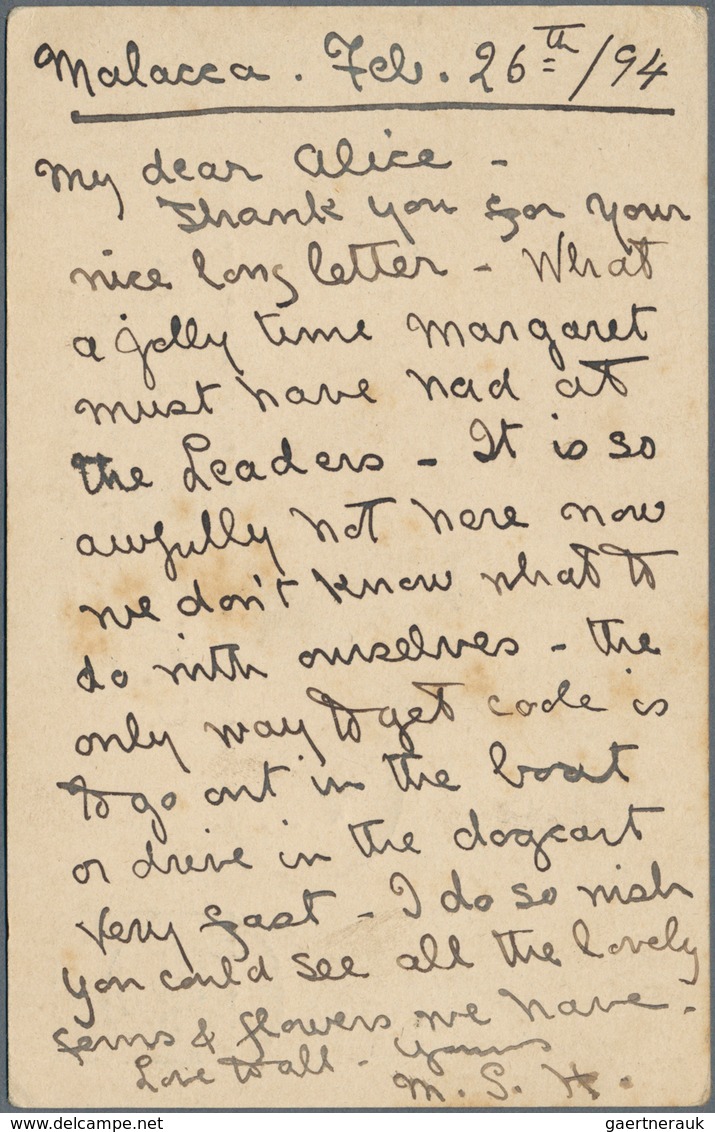 Malacca. Feb. 26th/94
My dear Alice -
Thank you for your
nice long letter - What
a jolly time Margaret
must have had at
the Leaders - It is so
awfully hot here now
we don't know what to
do with ourselves - the
only way to get cool is
to go out in the boat
or drive in the dogcart
very fast - I do so wish
you could see all the lovely
ferns & flowers we have.
Love to all - Yours
M. S. H.
gaertnerauk